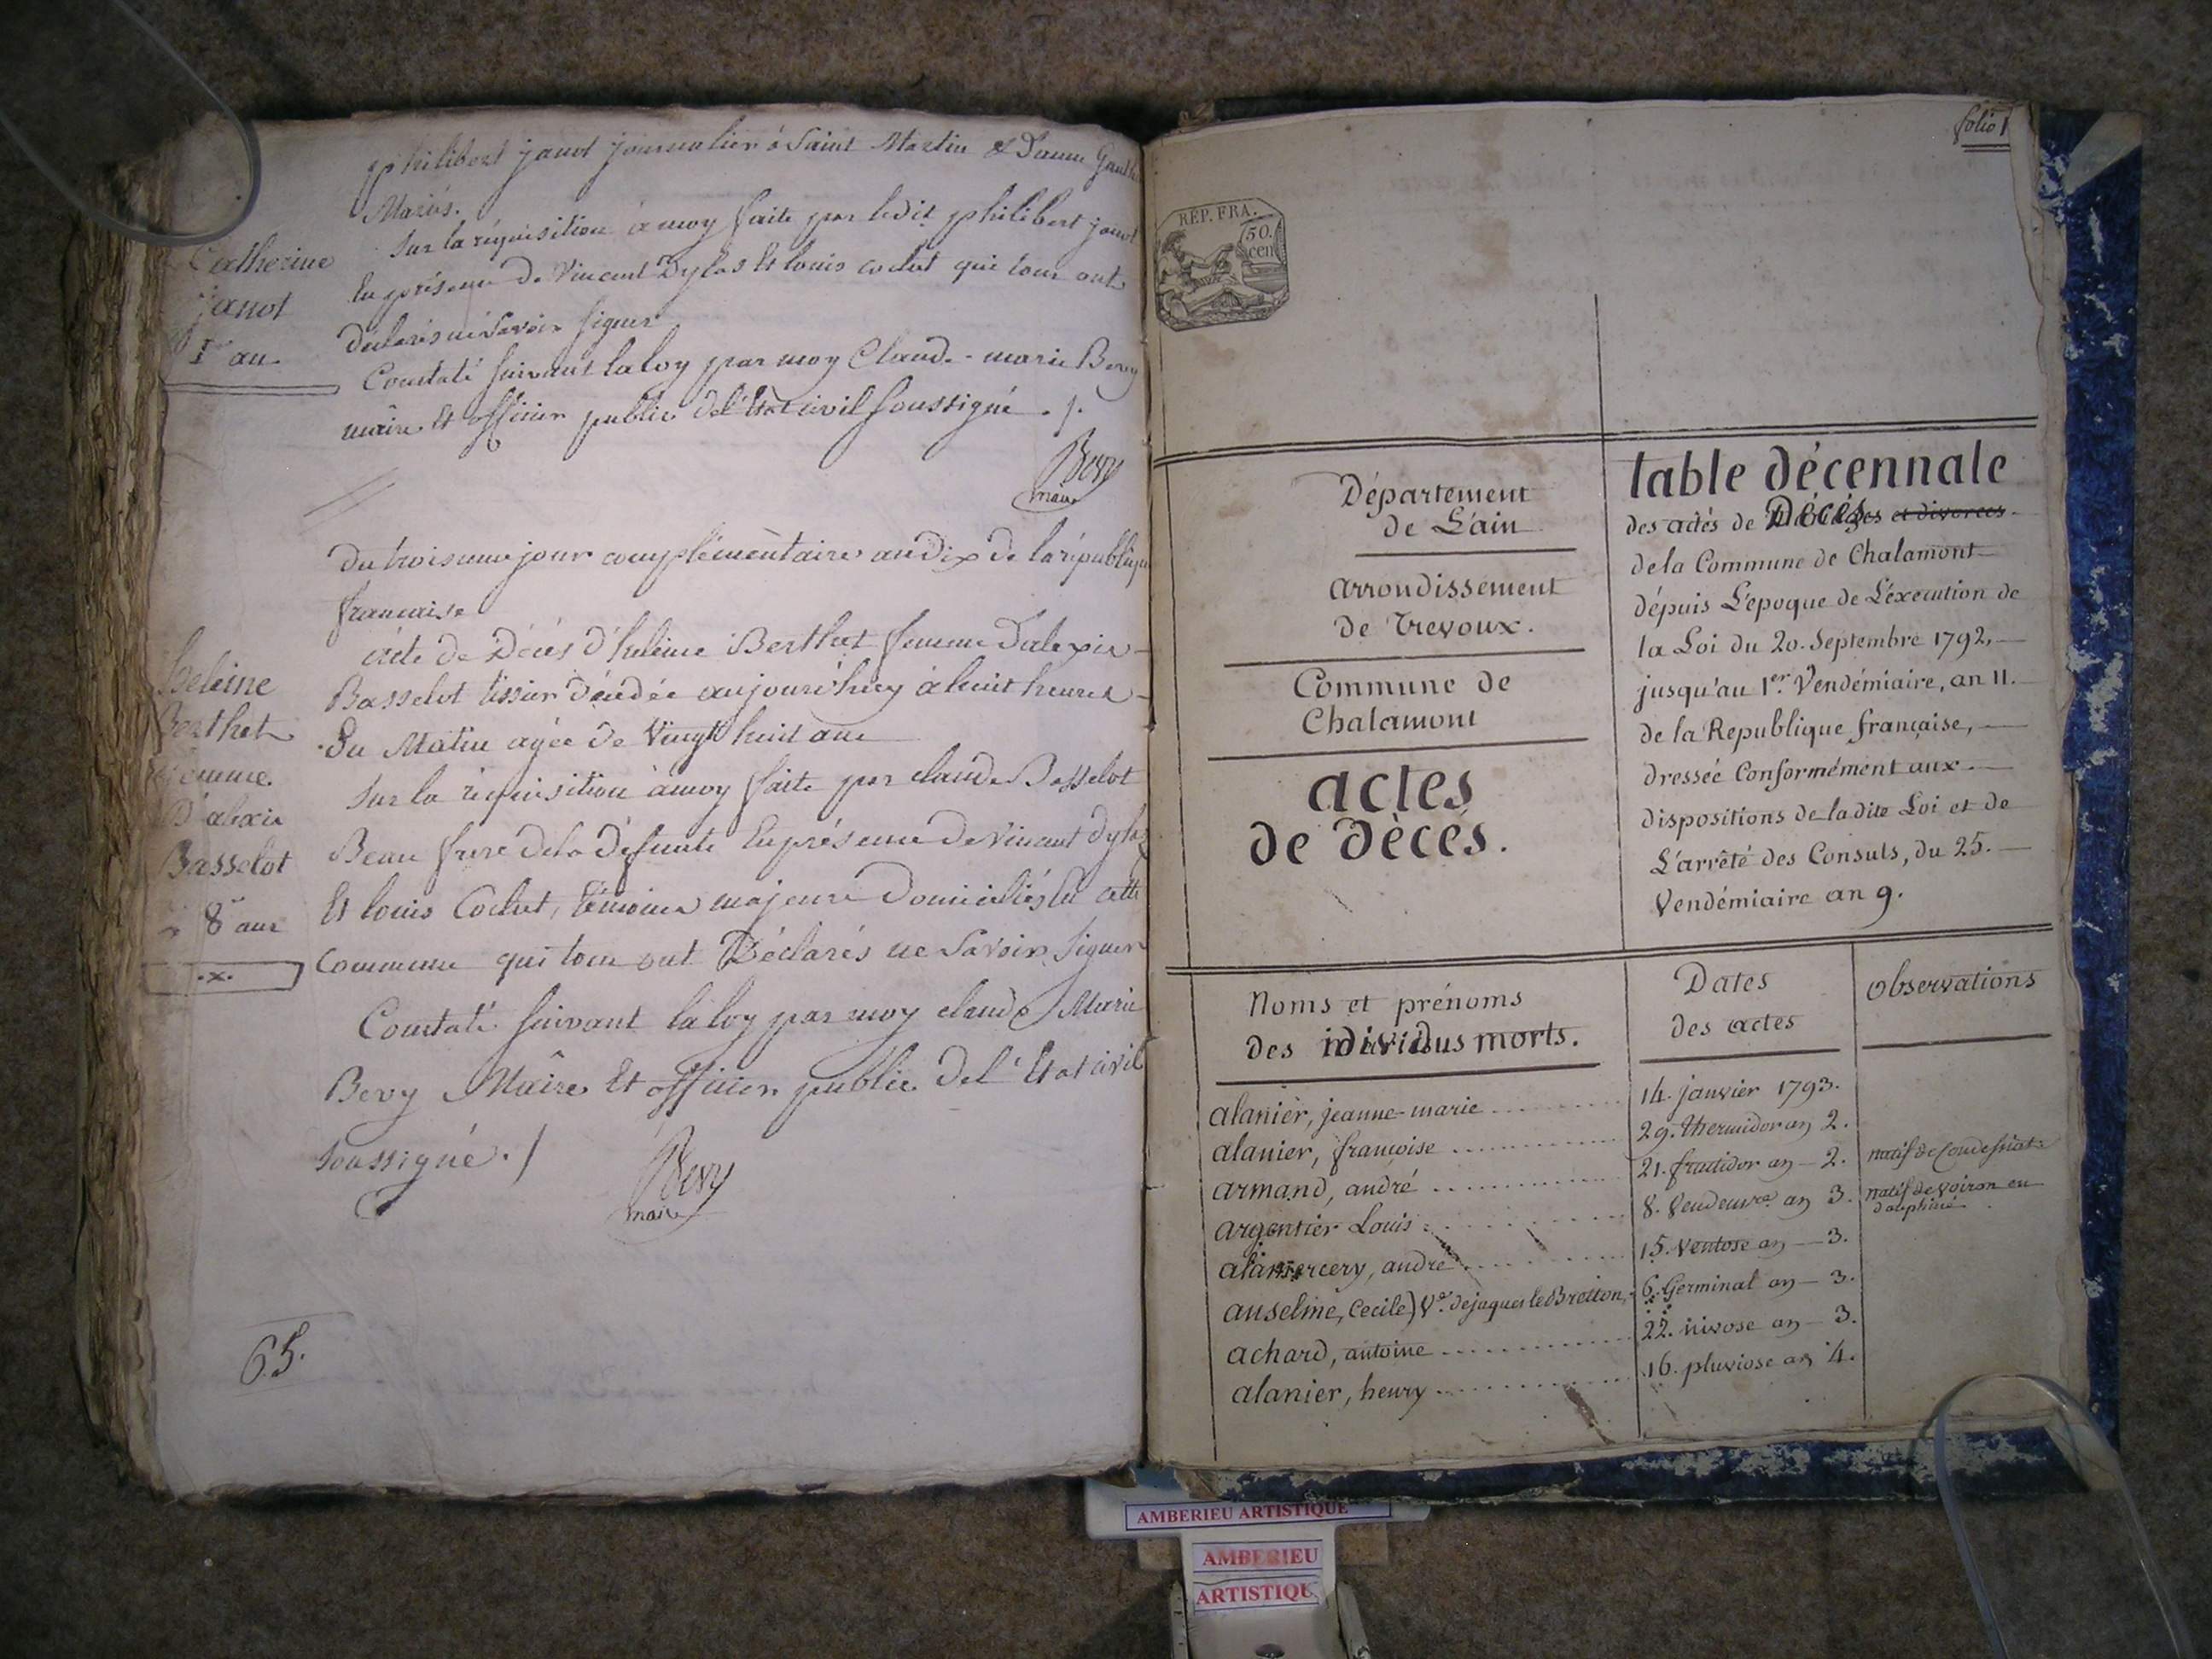 philibert janot journalier à Saint Martin & d'anne
Mariés.
Sur la réquisition à moy faite par ledit philibert janot
En présence de Vincent Dylas Et louis cochet qui tous ont
déclarés ne savoir signer
Constaté suivant la loy par moy Claude-marie Bevy
maire Et officier public de l'Etat civil soussigné ./.
Bevy
maire
Catherine
janot
1 an
du troisieme jour complémentaire an dix de la république
francaise
acte de Décés d'heleine Berthet femme d'alexis
Basselot tissier décédée aujourd'huy à huit heures
du Matin agée de Vingt huit ans
Sur la réquisition à moy faite par claude Basselot
Beau frere de la défunte En présence de Vincent dylas
Et louis Cochet, témoins majeurs Domiciliés En cette
Commune qui tous ont Déclarés ne Savoir Signer
Constaté suivant la loy par moy claude Marie
Bevy Maire Et officier public de l'Etat civil
soussigné ./
Bevy
maire
heleine
Berthet
femme
D'alexis
Basselot
8 ans
.x.
65.
folio 1
RÉP. FRA.
50.
cen
Département
de L'ain
arrondissement
de Trevoux.
Commune de
Chalamont
actes
de dècés.
table décennale
des actés de Décés et divorces
de la Commune de Chalamont
dépuis L'époque de L'éxécution de
la Loi du 20. Septembre 1792,
jusqu'au 1er. Vendémiaire, an 11.
de la Republique française,
dressée Conformément aux
dispositions de la dite Loi et de
L'arrêté des Consuls, du 25.
Vendémiaire an 9.
Noms et prénoms
des individus morts.
Dates
des actes
observations
alanier, jeanne-marie 14. janvier 1793.
alanier, françoise 29. thermidor an 2.
armand, andré 21. fructidor an 2. natif de
argentier Louis 8. Vendemre. an 3. natif de voiron en
dauphiné
andre 15. ventose an 3.
anselme, Cecile) Ve. de jaques le Bretton, 6. Germinal an 3.
achard, antoine 22. nivose an 3.
alanier, henry 16. pluviose an 4.
AMBERIEU ARTISTIQUE
AMBERIEU
ARTISTIQU